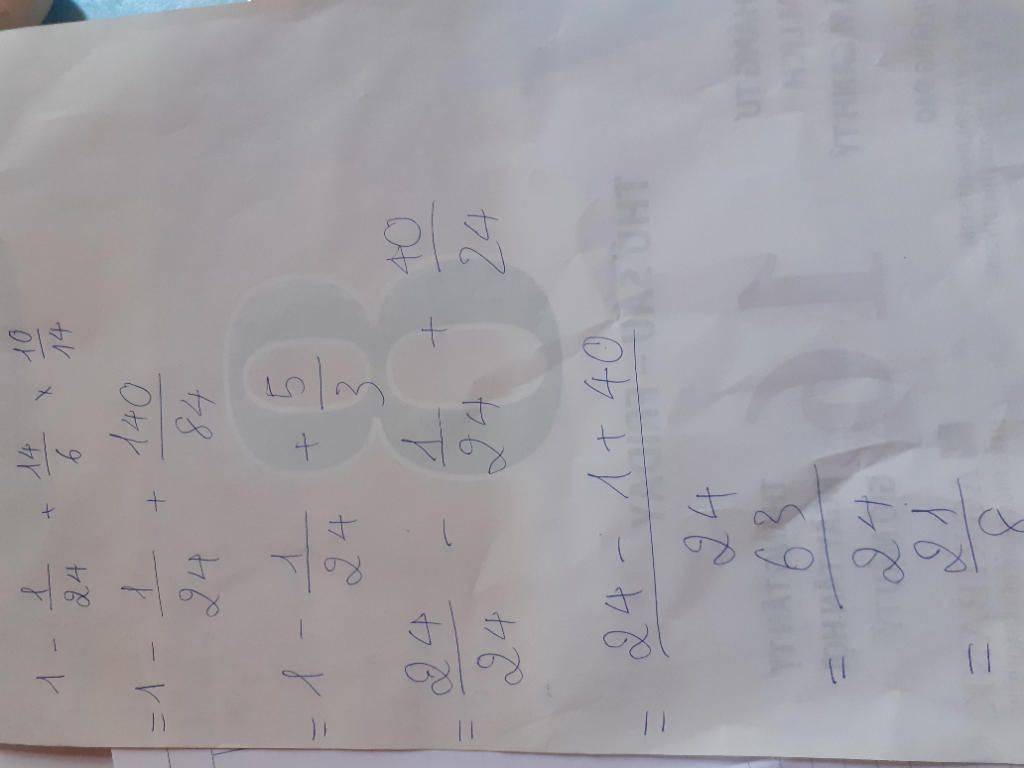 1 - 1/24 + 14/6 × 10/14
= 1 - 1/24 + 140/84
= 1 - 1/24 + 5/3
= 24/24 - 1/24 + 40/24
= 24 - 1 + 40/24
= 63/24
= 21/8